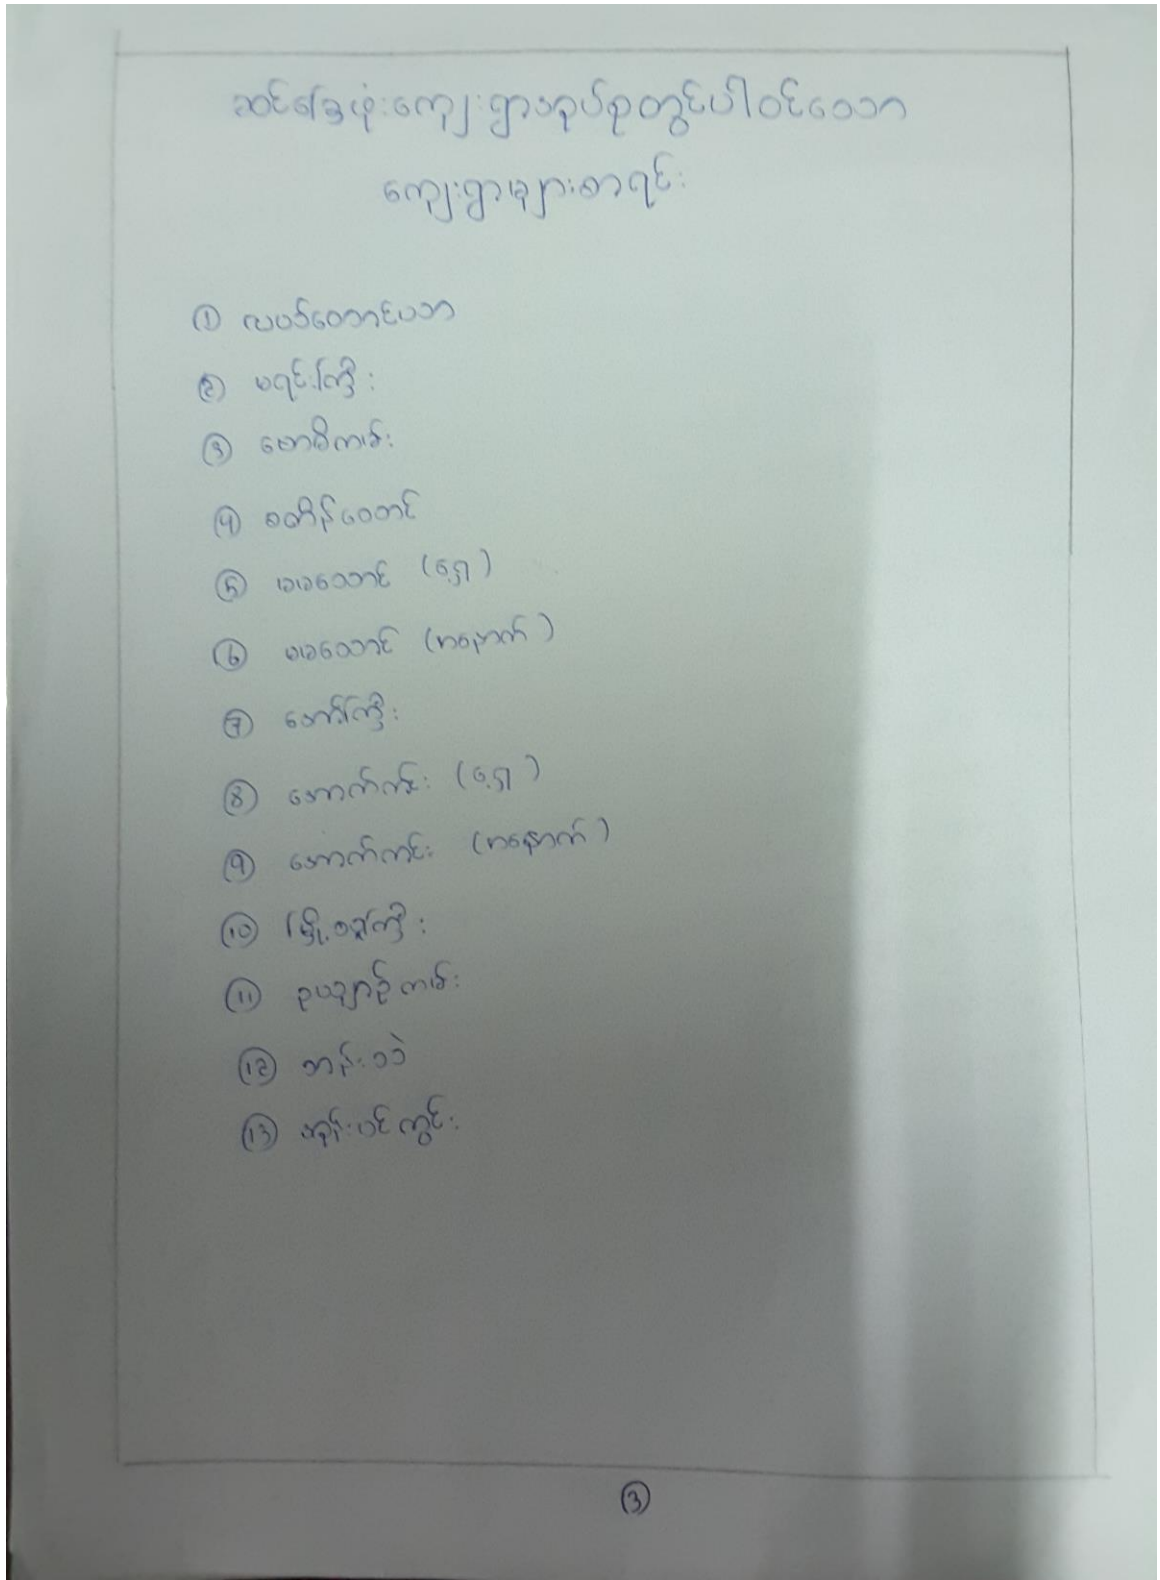 ဆင်ခြေဖုံးကျေးရွာအုပ်စုတွင်ပါဝင်သော
ကျေးရွာများစာရင်း
① လပတ်တောင်ပသာ
② မရင်းကြီး
③ ဗောဓိကုန်း
④ စတိန်တောင်
⑤ မမသောင် (ရှေ့)
⑥ မမသောင် (အနောက်)
⑦ အော်ကြီး
⑧ အောက်ကင်း (ရှေ့)
⑨ အောက်ကင်း (အနောက်)
⑩ မြို့ဝန်ကြီး
⑪ ဥယျာဉ်ကုန်း
⑫ ဘန်းဘွဲ
⑬ အုန်းပင်ကွင်း
③